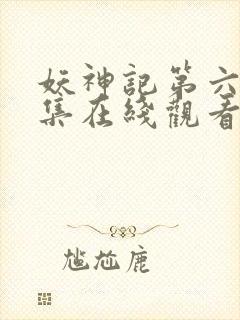 妖神記第六
集在綫觀看
尷尬鹿